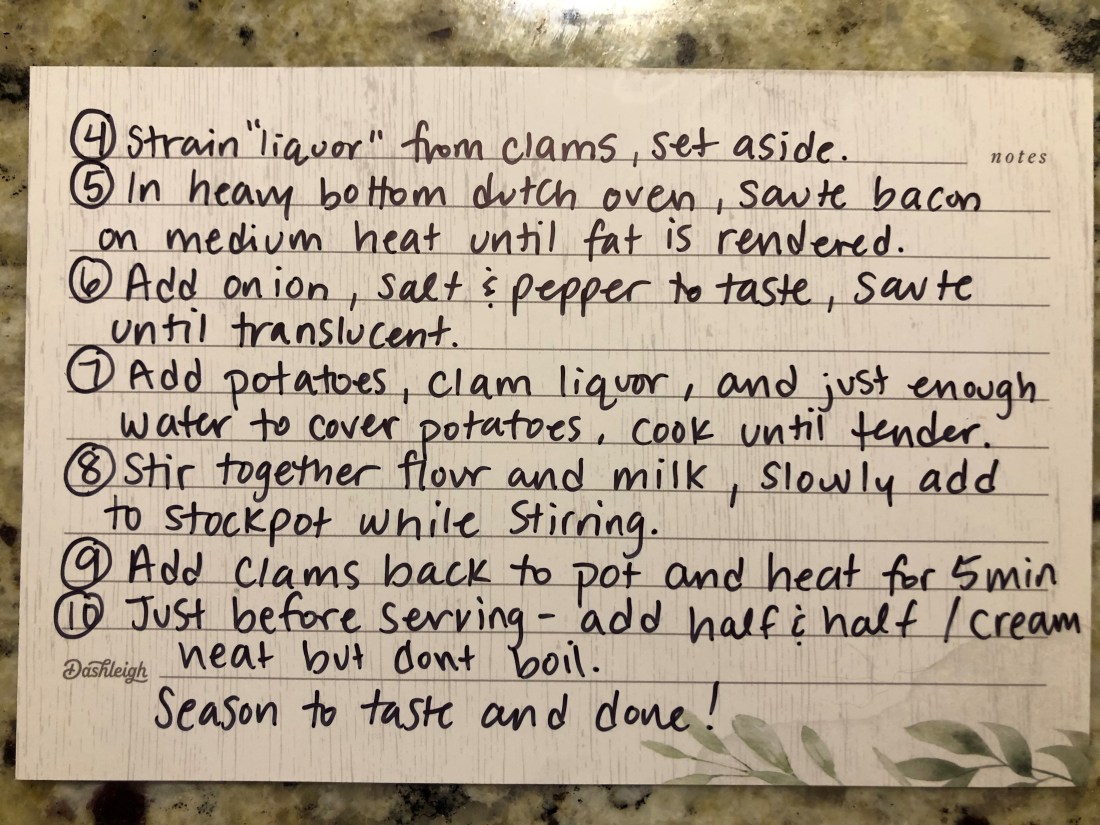 ④ Strain "liquor" from clams, set aside.
notes
⑤ In heavy bottom dutch oven, saute bacon
on medium heat until fat is rendered.
⑥ Add onion, salt & pepper to taste, saute
until translucent.
⑦ Add potatoes, clam liquor, and just enough
water to cover potatoes, cook until tender.
⑧ Stir together flour and milk, slowly add
to stockpot while stirring.
⑨ Add clams back to pot and heat for 5min
⑩ Just before serving - add half & half / cream
heat but dont boil.
Dashleigh
Season to taste and done!